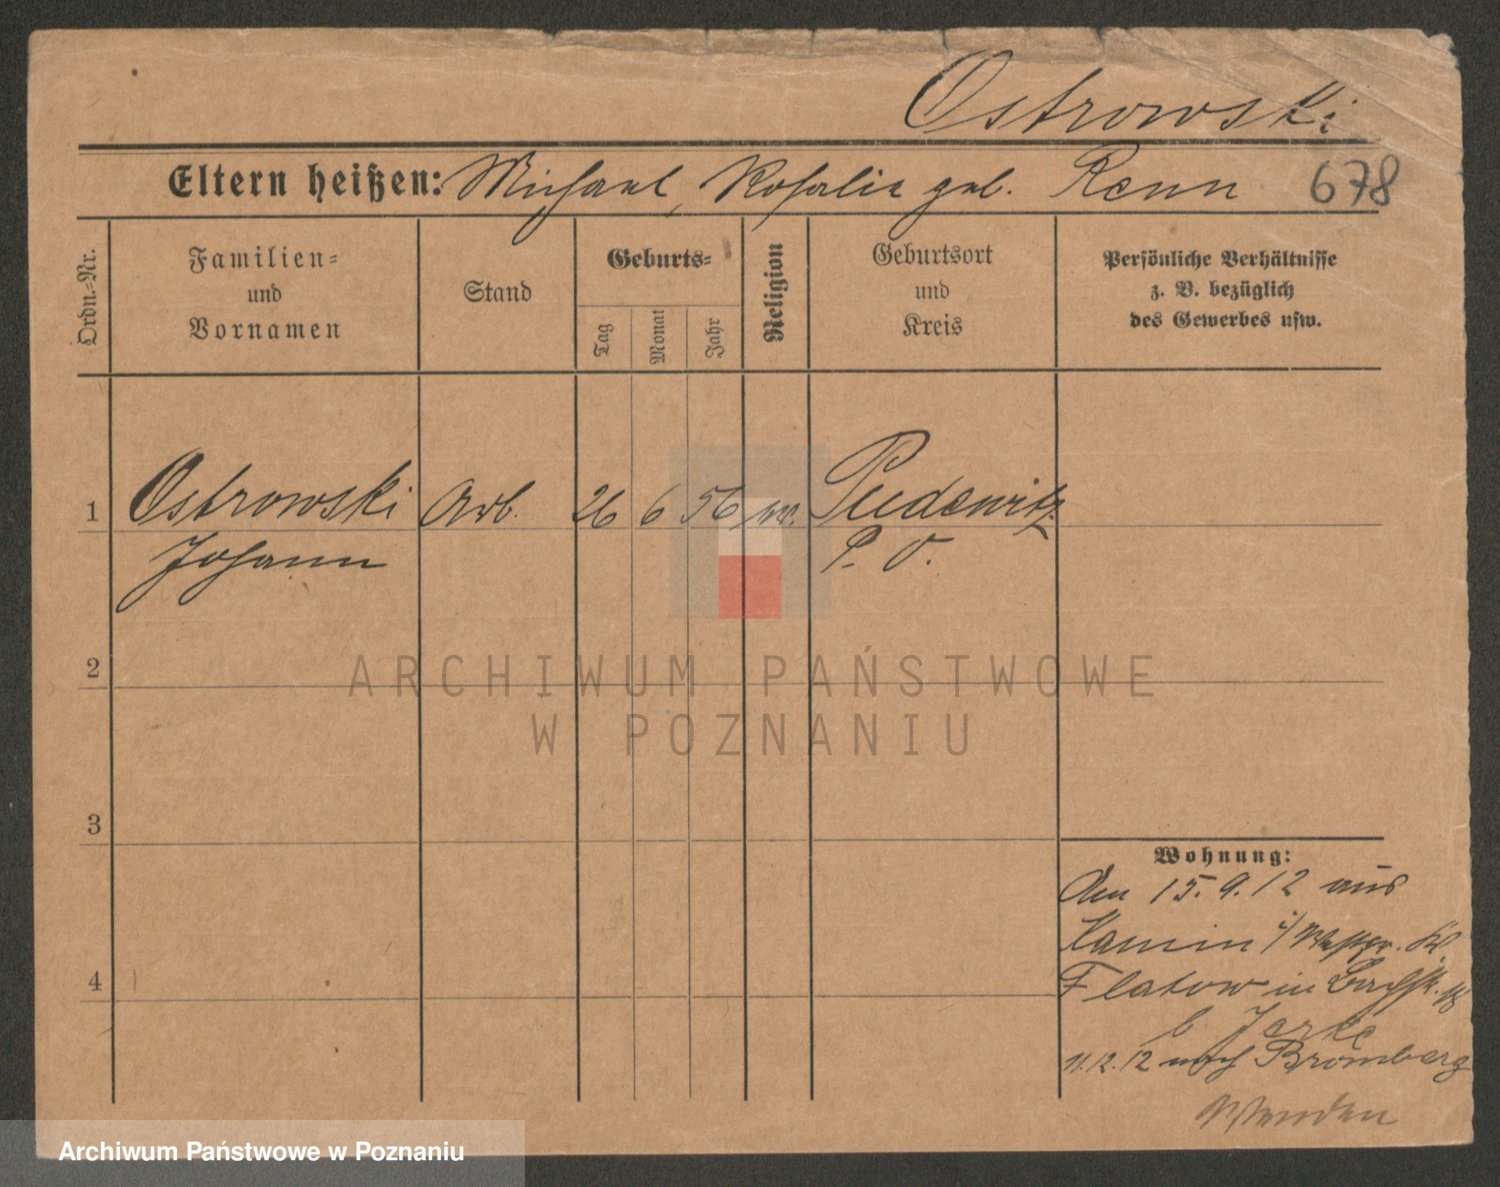 Ostrowski
Eltern heißen: Michael, Rosalie geb. Renn 678
Ordn.-Nr.
Familien-
und
Vornamen
Stand
Geburts-
Tag
Monat
Jahr
Religion
Geburtsort
und
Kreis
Persönliche Verhältnisse
z. B. bezüglich
des Gewerbes usw.
1 Ostrowski Arb. 26 6 56 Pudewitz
Johann P. O.
2
ARCHIWUM PAŃSTWOWE
W POZNANIU
3
Wohnung:
Am 15.9.12 aus
Kamin i/Westpr. Kr.
4
Flatow in Bachstr.
b. Jerke
11.12.12 nach Bromberg
Wenden
Archiwum Państwowe w Poznaniu